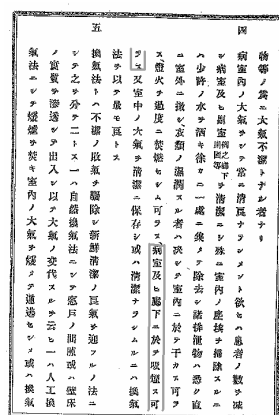 物等ノ爲ニ大氣不潔トナル者ナリ
四
病室內ノ大氣ヲシテ常ニ淸良ナラシメント欲セハ患者ノ數ヲ減
シ病室及ヒ副室廊之廊下厠圊等ヲ淸潔ニシ殊ニ室內ノ塵埃ヲ掃除スルニ
ハ少許ノ水ヲ洒キ徐カニ一處ニ集メテ除去シ諸排泄物ハ悉ク直
ニ室外ニ撤シ衣類ノ濕潤スル者ハ決シテ室內ニ於テ干カス可ラ
ス燈火ヲ過度ニ焚燃セシム可ラス病室及ヒ廊下ニ於テ吸烟ス可
ラス又室中ノ大氣ヲ淸潔ニ保存シ或ハ淸潔ナラシムルニハ換氣
法ヲ以テ最モ良トス
五
換氣法トハ不潔ノ敗氣ヲ驅除シ新鮮淸潔ノ良氣ヲ迎フルノ法ニ
シテ之ヲ分テ二トス一ハ自然換氣法ニシテ窓戶ノ間隙或ハ壁床
ノ實質ヲ滲透シテ出入シ以テ大氣ノ交代スルヲ云ヒ一ハ人工換
氣法ニシテ煖爐ヲ焚キ室內ノ大氣ヲ煖メテ運逃セシメ或ハ換氣